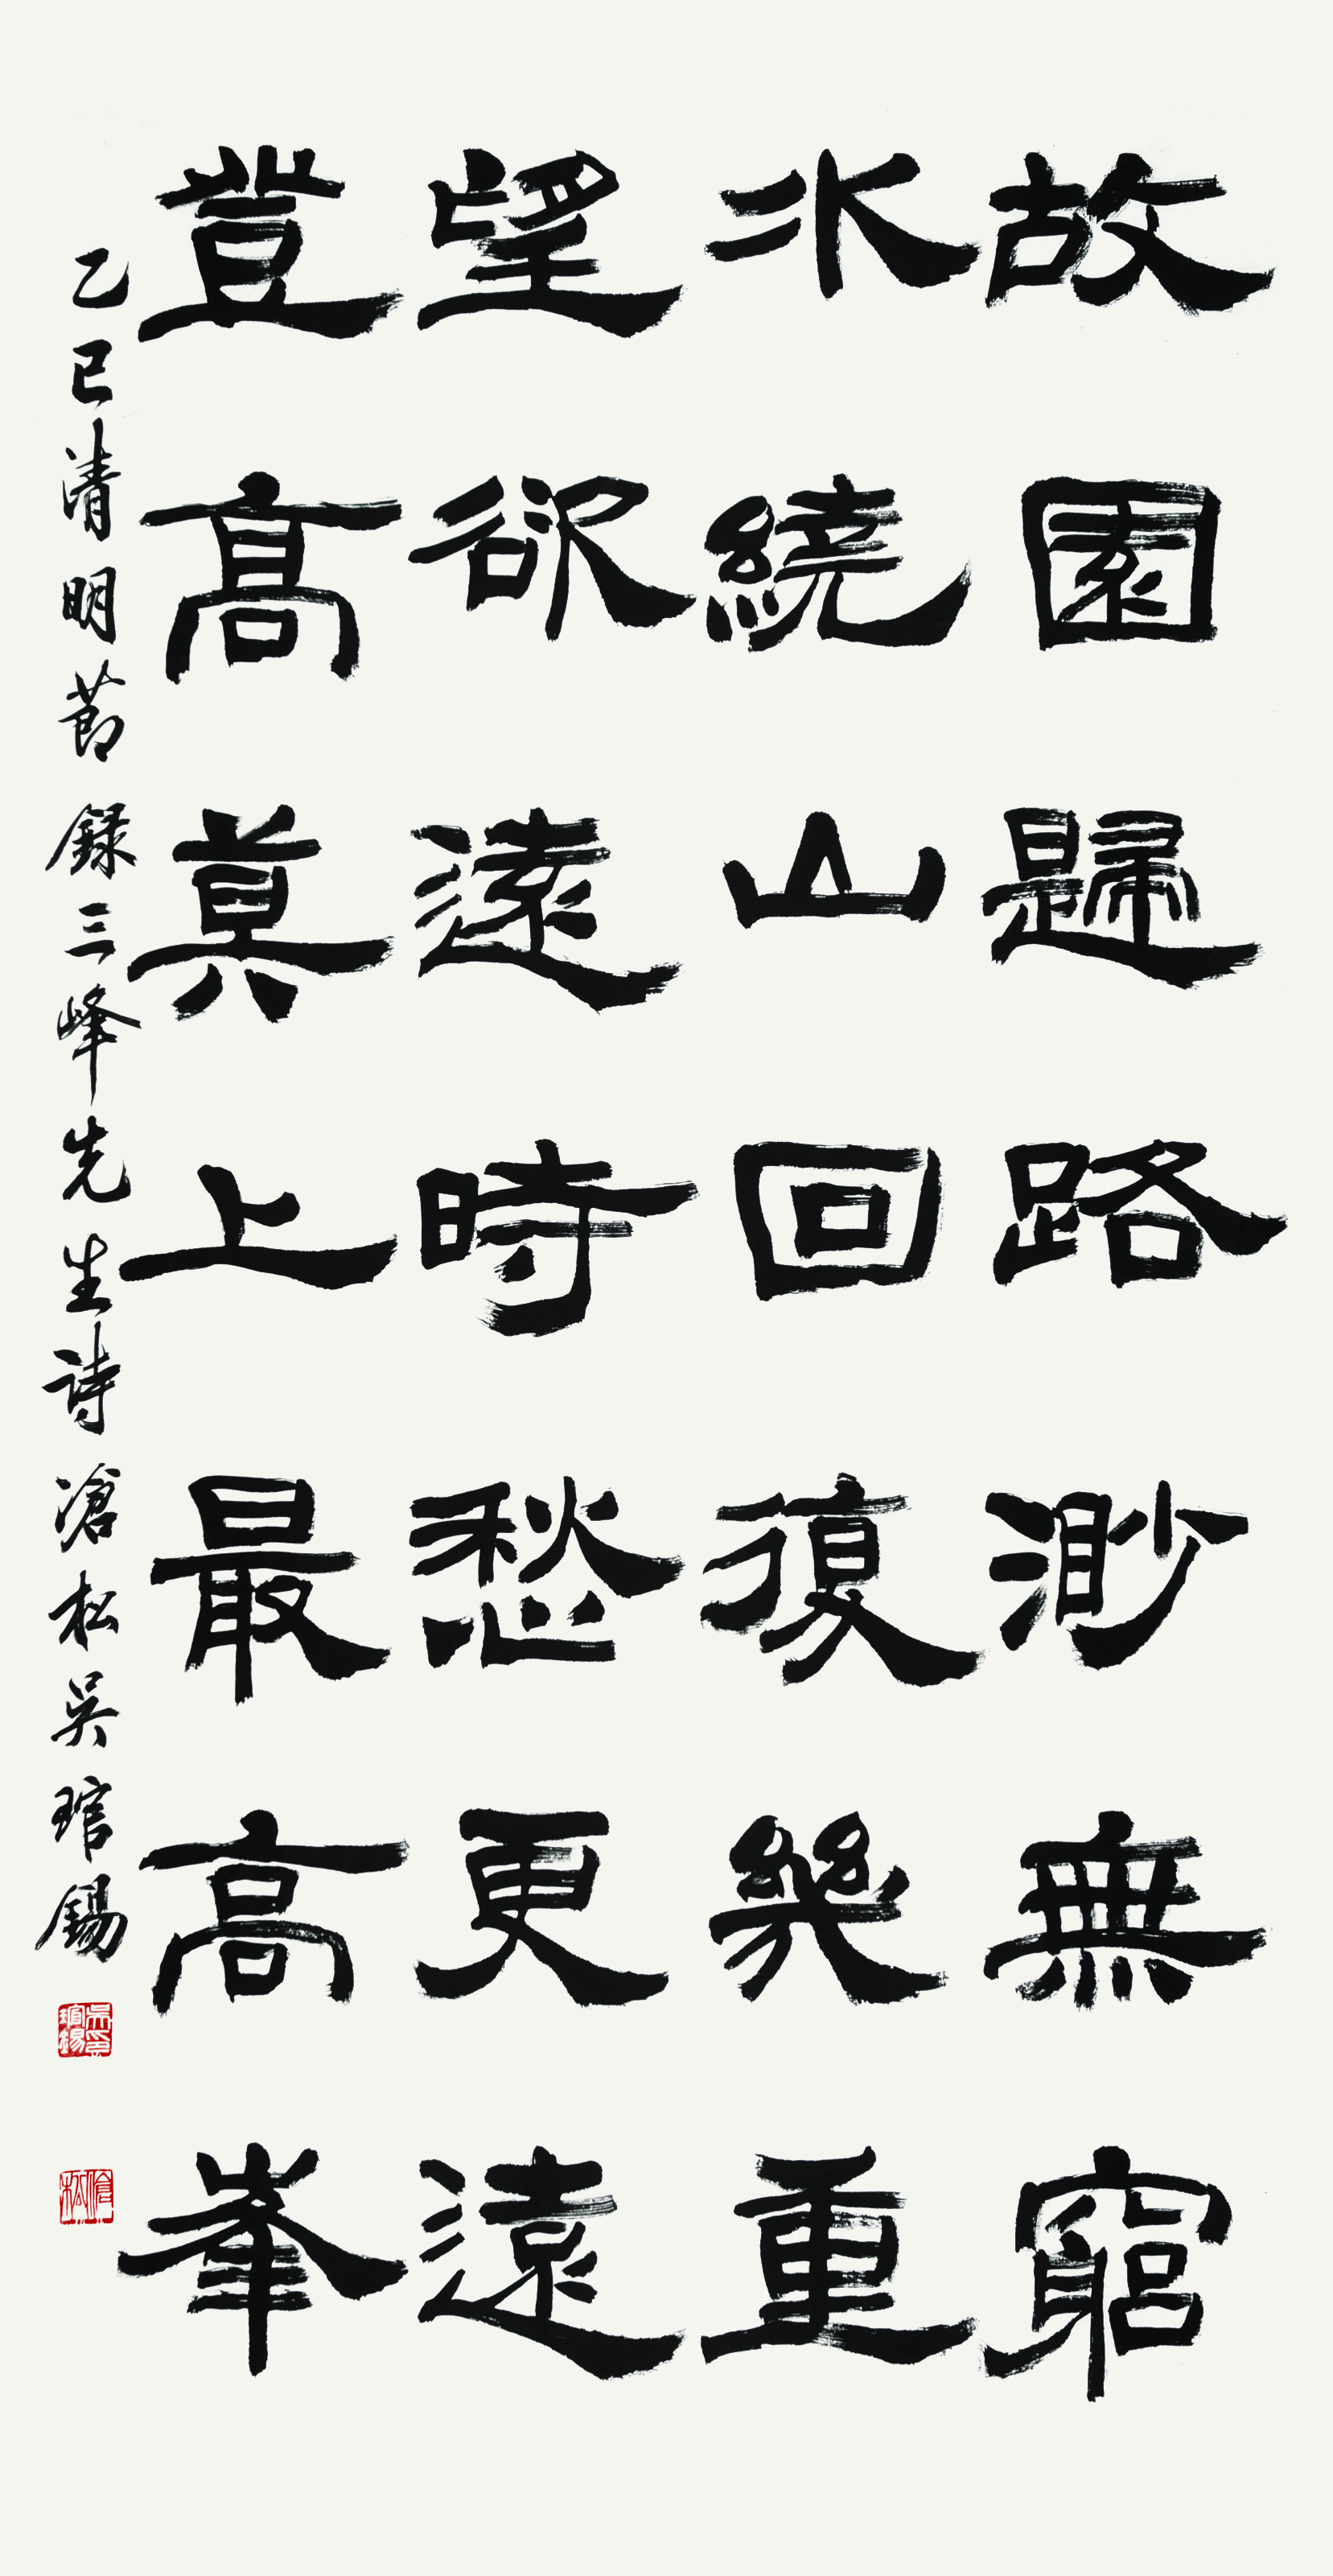 故園歸路渺無窮
水繞山回復幾重
望欲遠時愁更遠
登高莫上最高峯
乙巳清明節 錄三峰先生詩 滄松吳琯錫
吳琯錫印
滄松